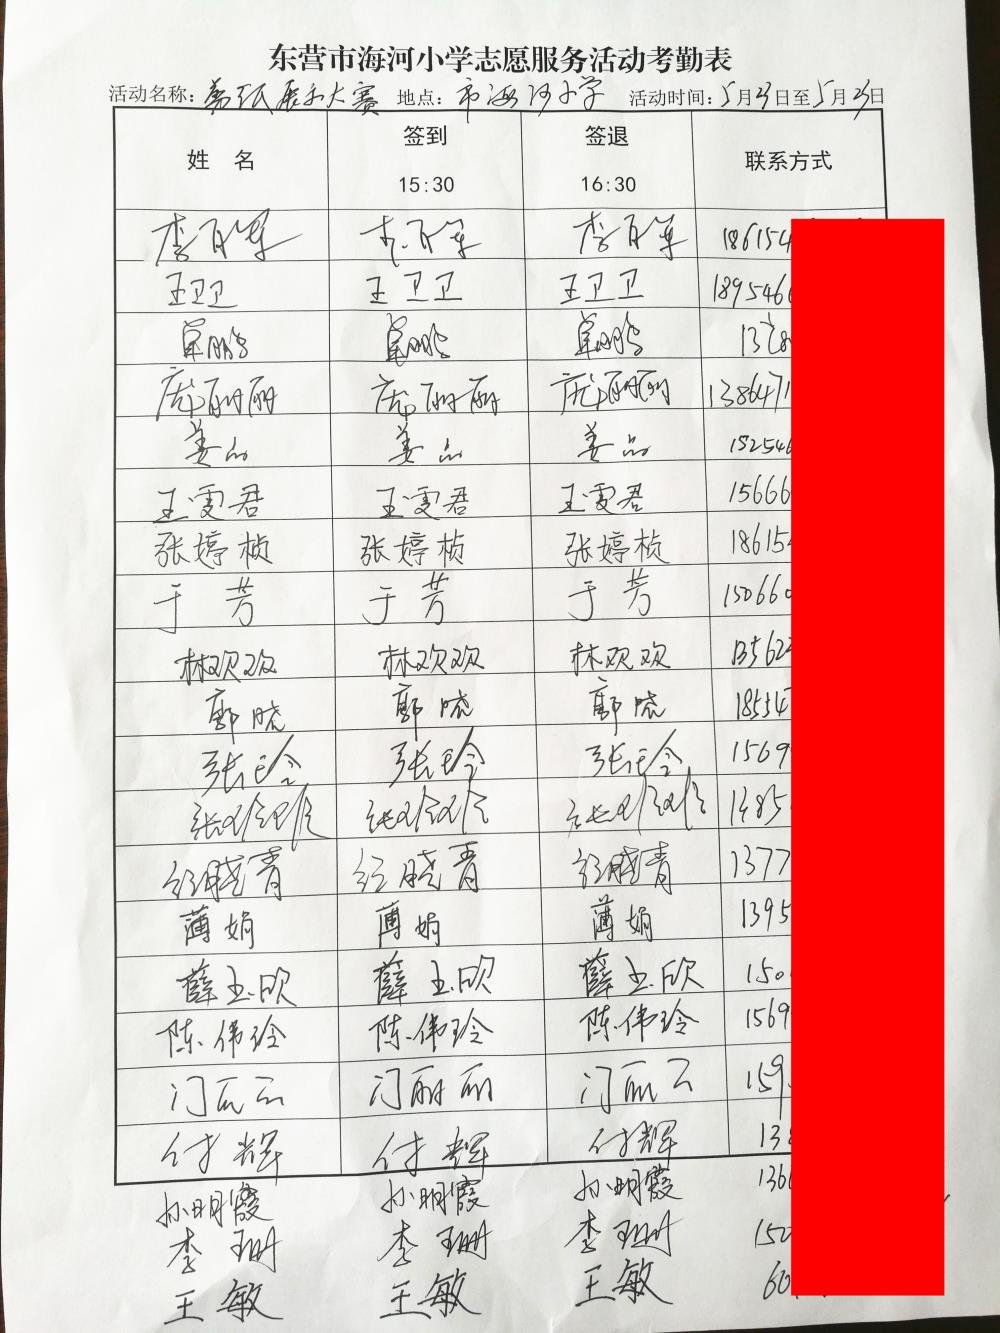 东营市海河小学志愿服务活动考勤表
活动名称：剪纸展示大赛 地点：市海河小学 活动时间：5月23日至5月23日
姓 名 签到 15:30 签退 16:30 联系方式
李百军 李百军 李百军 186154
王卫卫 王卫卫 王卫卫 1895466
单鹏 单鹏 单鹏 13
庞丽丽 庞丽丽 庞丽丽 1386471
姜品 姜品 姜品 182546
王雯君 王雯君 王雯君 15666
张婷桢 张婷桢 张婷桢 18615
于芳 于芳 于芳 150660
林欢欢 林欢欢 林欢欢 13562
郭晓 郭晓 郭晓 1834
张玲 张玲 张玲 1569
张玲玲 张玲玲 张玲玲 1485
纪晓青 纪晓青 纪晓青 1377
薄娟 薄娟 薄娟 1395
薛玉欣 薛玉欣 薛玉欣 150
陈伟玲 陈伟玲 陈伟玲 1569
门丽丽 门丽丽 门丽丽 159
付辉 付辉 付辉 13
孙明霞 孙明霞 孙明霞 136
李珊 李珊 李珊 152
王敏 王敏 王敏 60